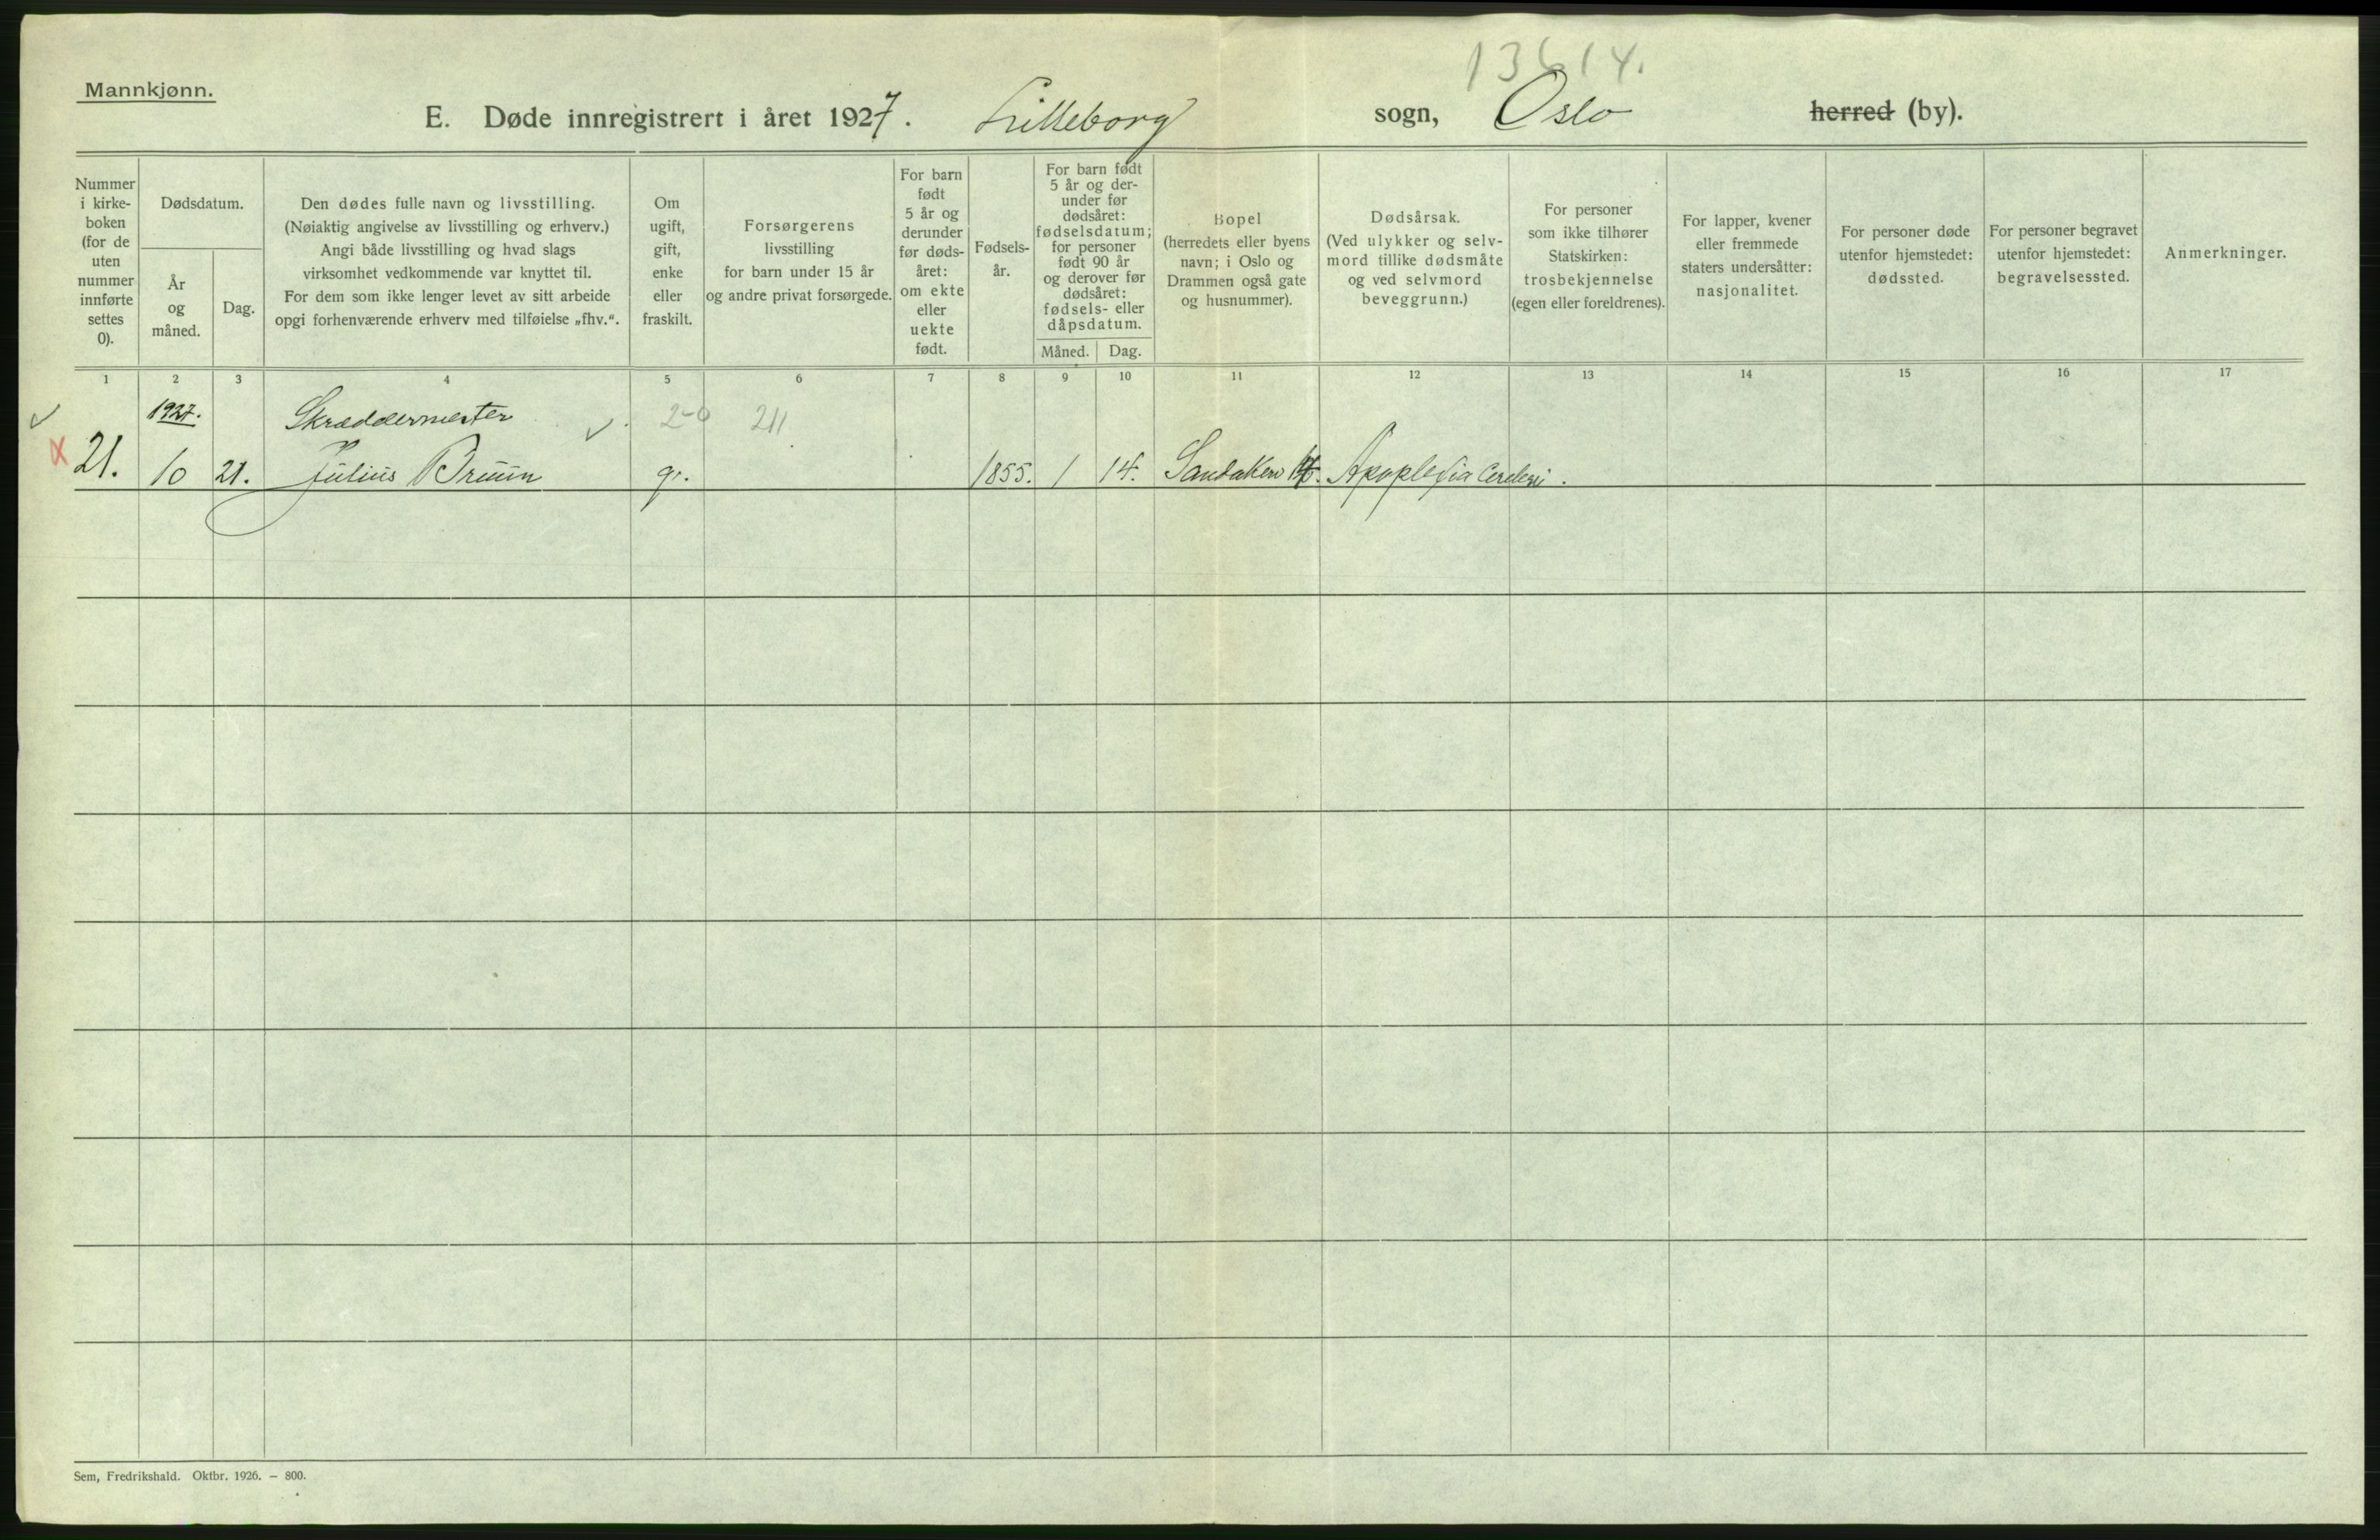 13614.
Mannkjønn.
E. Døde innregistrert i året 1927. Lilleborg sogn, Oslo herred (by).
Nummer i kirke-boken (for de uten nummer innførte settes 0).
Dødsdatum.
År og måned.
Dag.
Den dødes fulle navn og livsstilling.
(Nøiaktig angivelse av livsstilling og erhverv.)
Angi både livsstilling og hvad slags
virksomhet vedkommende var knyttet til.
For dem som ikke lenger levet av sitt arbeide
opgi forhenværende erhverv med tilføielse „fhv.“.
Om ugift, gift, enke eller fraskilt.
Forsørgerens
livsstilling
for barn under 15 år
og andre privat forsørgede.
For barn født 5 år og derunder før døds-året: om ekte eller uekte født.
Fødsels-år.
For barn født 5 år og der-under før dødsåret: fødselsdatum; for personer født 90 år og derover før dødsåret: fødsels- eller dåpsdatum.
Måned. Dag.
Bopel
(herredets eller byens
navn; i Oslo og
Drammen også gate
og husnummer).
Dødsårsak.
(Ved ulykker og selv-
mord tillike dødsmåte
og ved selvmord
beveggrunn.)
For personer
som ikke tilhører
Statskirken:
trosbekjennelse
(egen eller foreldrenes).
For lapper, kvener
eller fremmede
staters undersåtter:
nasjonalitet.
For personer døde
utenfor hjemstedet:
dødssted.
For personer begravet
utenfor hjemstedet:
begravelsessted.
Anmerkninger.
1 2 3 4 5 6 7 8 9 10 11 12 13 14 15 16 17
1927. Skræddermester 2-0 211
21. 10 21. Julius Bruun g. 1855. 1 14. Sandaker Apoplexia Cerebri.
Sem, Fredrikshald. Oktbr. 1926. — 800.